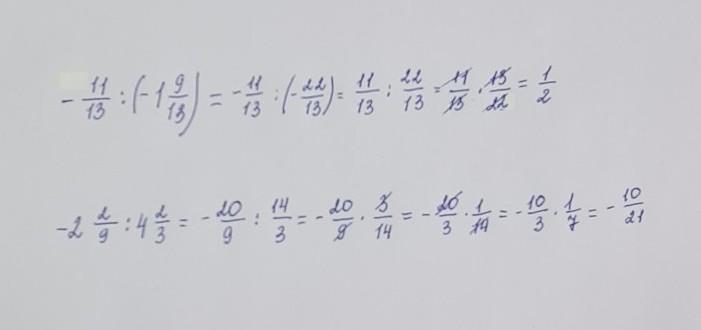 - 11/13 : (-1 9/13) = - 11/13 : (- 22/13) = 11/13 : 22/13 = 11/13 · 13/22 = 1/2
-2 2/9 : 4 2/3 = - 20/9 : 14/3 = - 20/9 · 3/14 = - 20/3 · 1/14 = - 10/3 · 1/7 = - 10/21